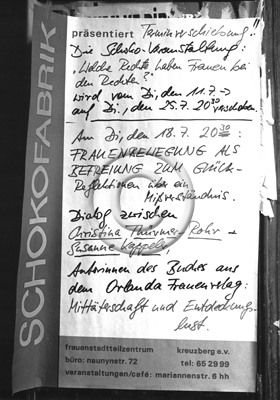 präsentiert Terminverschiebung!!
Die Schoko-Veranstaltung:
"Welche Rechte haben Frauen bei
den Rechten?"
wird vom Di, den 11.7. →
auf Di., den 25.7. 20³⁰ verschoben.
Am Di, den 18.7. 20³⁰
FRAUENBEWEGUNG ALS
BEFREIUNG ZUM GLÜCK-
Reflektionen über ein
Mißverständnis.
Dialog zwischen
Christina Thürmer-Rohr +
Susanne Kappeler,
Autorinnen des Buches aus
dem Orlanda Frauenverlag:
Mittäterschaft und Entdeckungs-
lust.
SCHOKOFABRIK
frauenstadtteilzentrum kreuzberg e.v.
büro: naunynstr. 72 tel: 65 29 99
veranstaltungen/café: mariannenstr. 6 hh